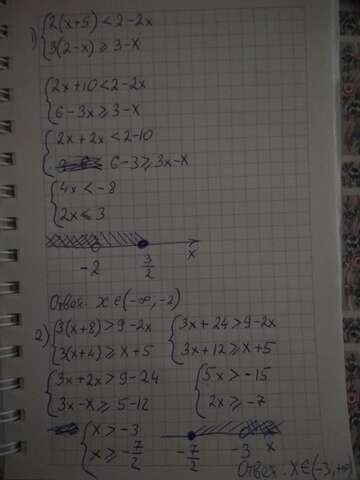 1) { 2(x+5) < 2-2x
3(2-x) ⩾ 3-x
{ 2x+10 < 2-2x
6-3x ⩾ 3-x
{ 2x+2x < 2-10
6-3 ⩾ 3x-x
{ 4x < -8
2x ⩽ 3
-2 3/2 x
Ответ: x∈(-∞, -2)
2) { 3(x+8) > 9-2x { 3x+24 > 9-2x
3(x+4) ⩾ x+5 3x+12 ⩾ x+5
{ 3x+2x > 9-24 { 5x > -15
3x-x ⩾ 5-12 2x ⩾ -7
{ x > -3
x ⩾ -7/2 -7/2 -3 x
Ответ: x∈(-3, +∞)